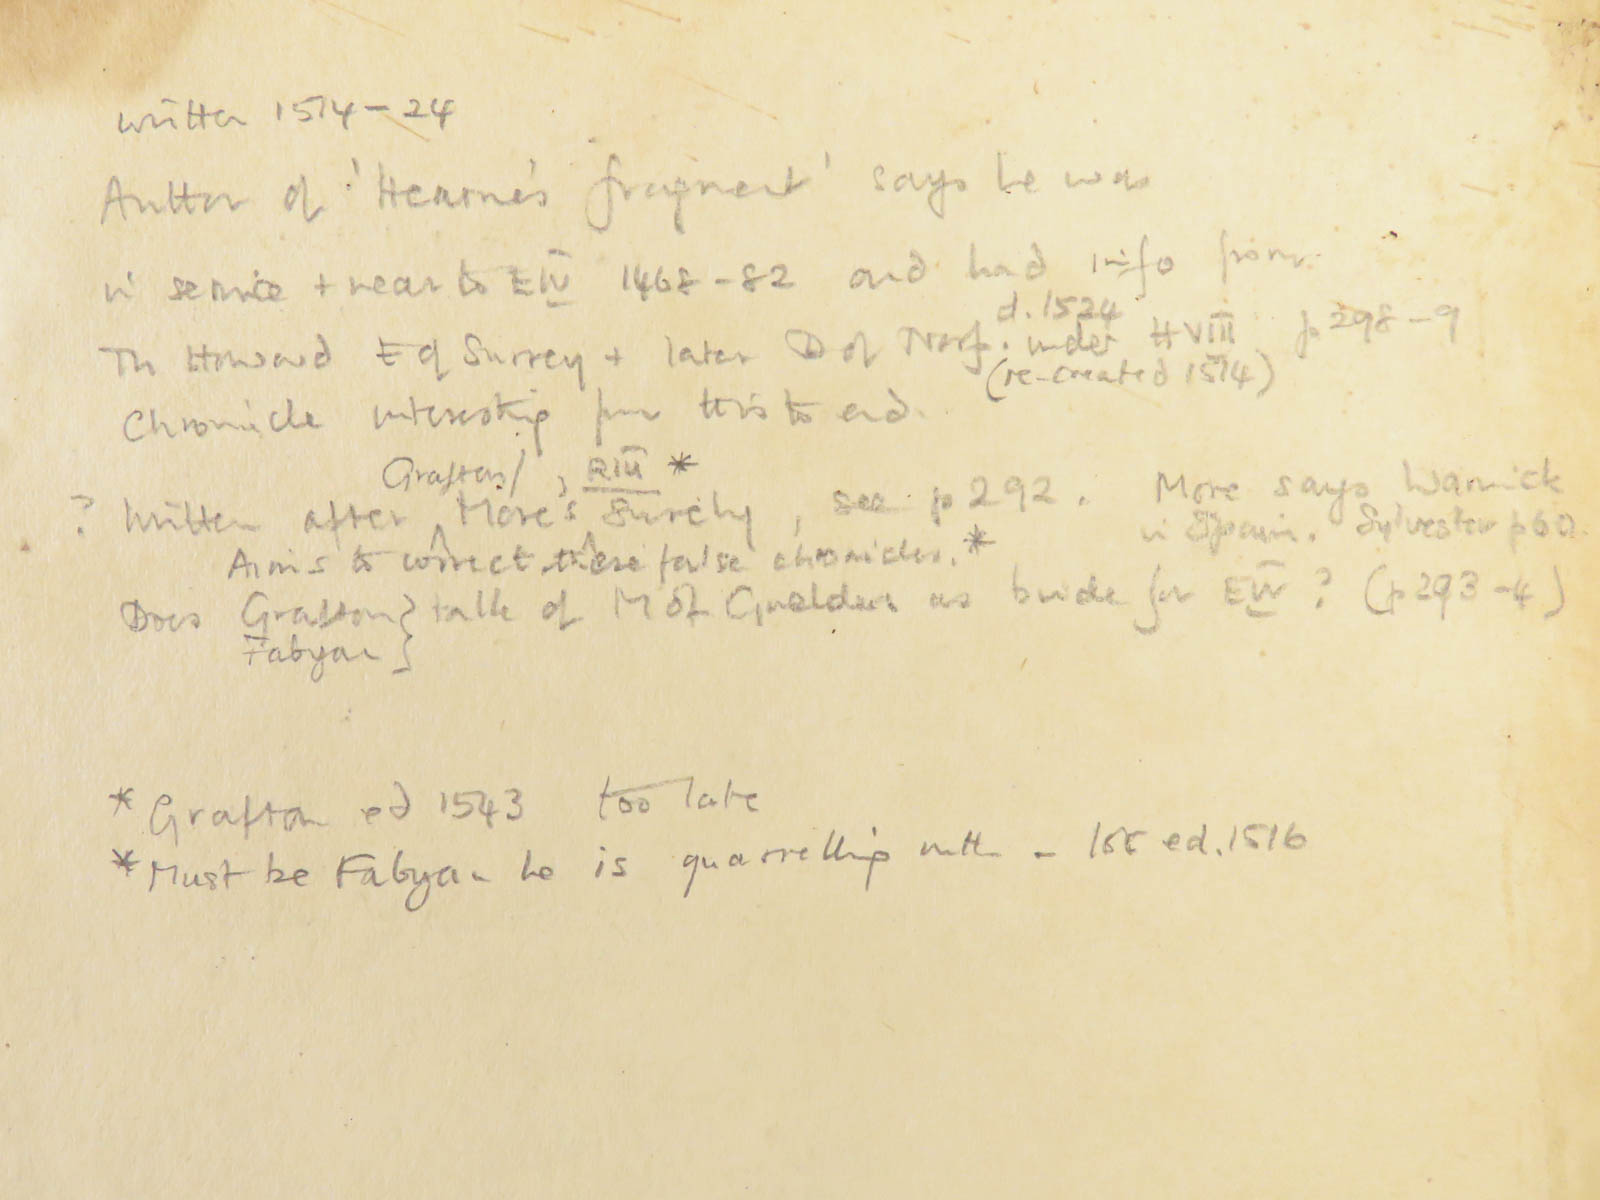 written 1514-24
Author of 'Hearne's fragment' says he was
in service + near to EIV 1468-82 and had info from
d. 1524
Th Howard E of Surrey + later D of Norf. under HVIII p 298-9
(re-created 1514)
Chronicle interesting from this to end.
Grafton/ , RIII *
? Written after More's surely, see p 292. More says Warwick
in Spain. Sylvester p 60.
Aims to correct these false chronicles. *
Does Grafton } talk of M of Guelders as bride for EIV? (p 293-4)
Fabyan }
* Grafton ed 1543 too late
* Must be Fabyan he is quarrelling with - 1st ed. 1516